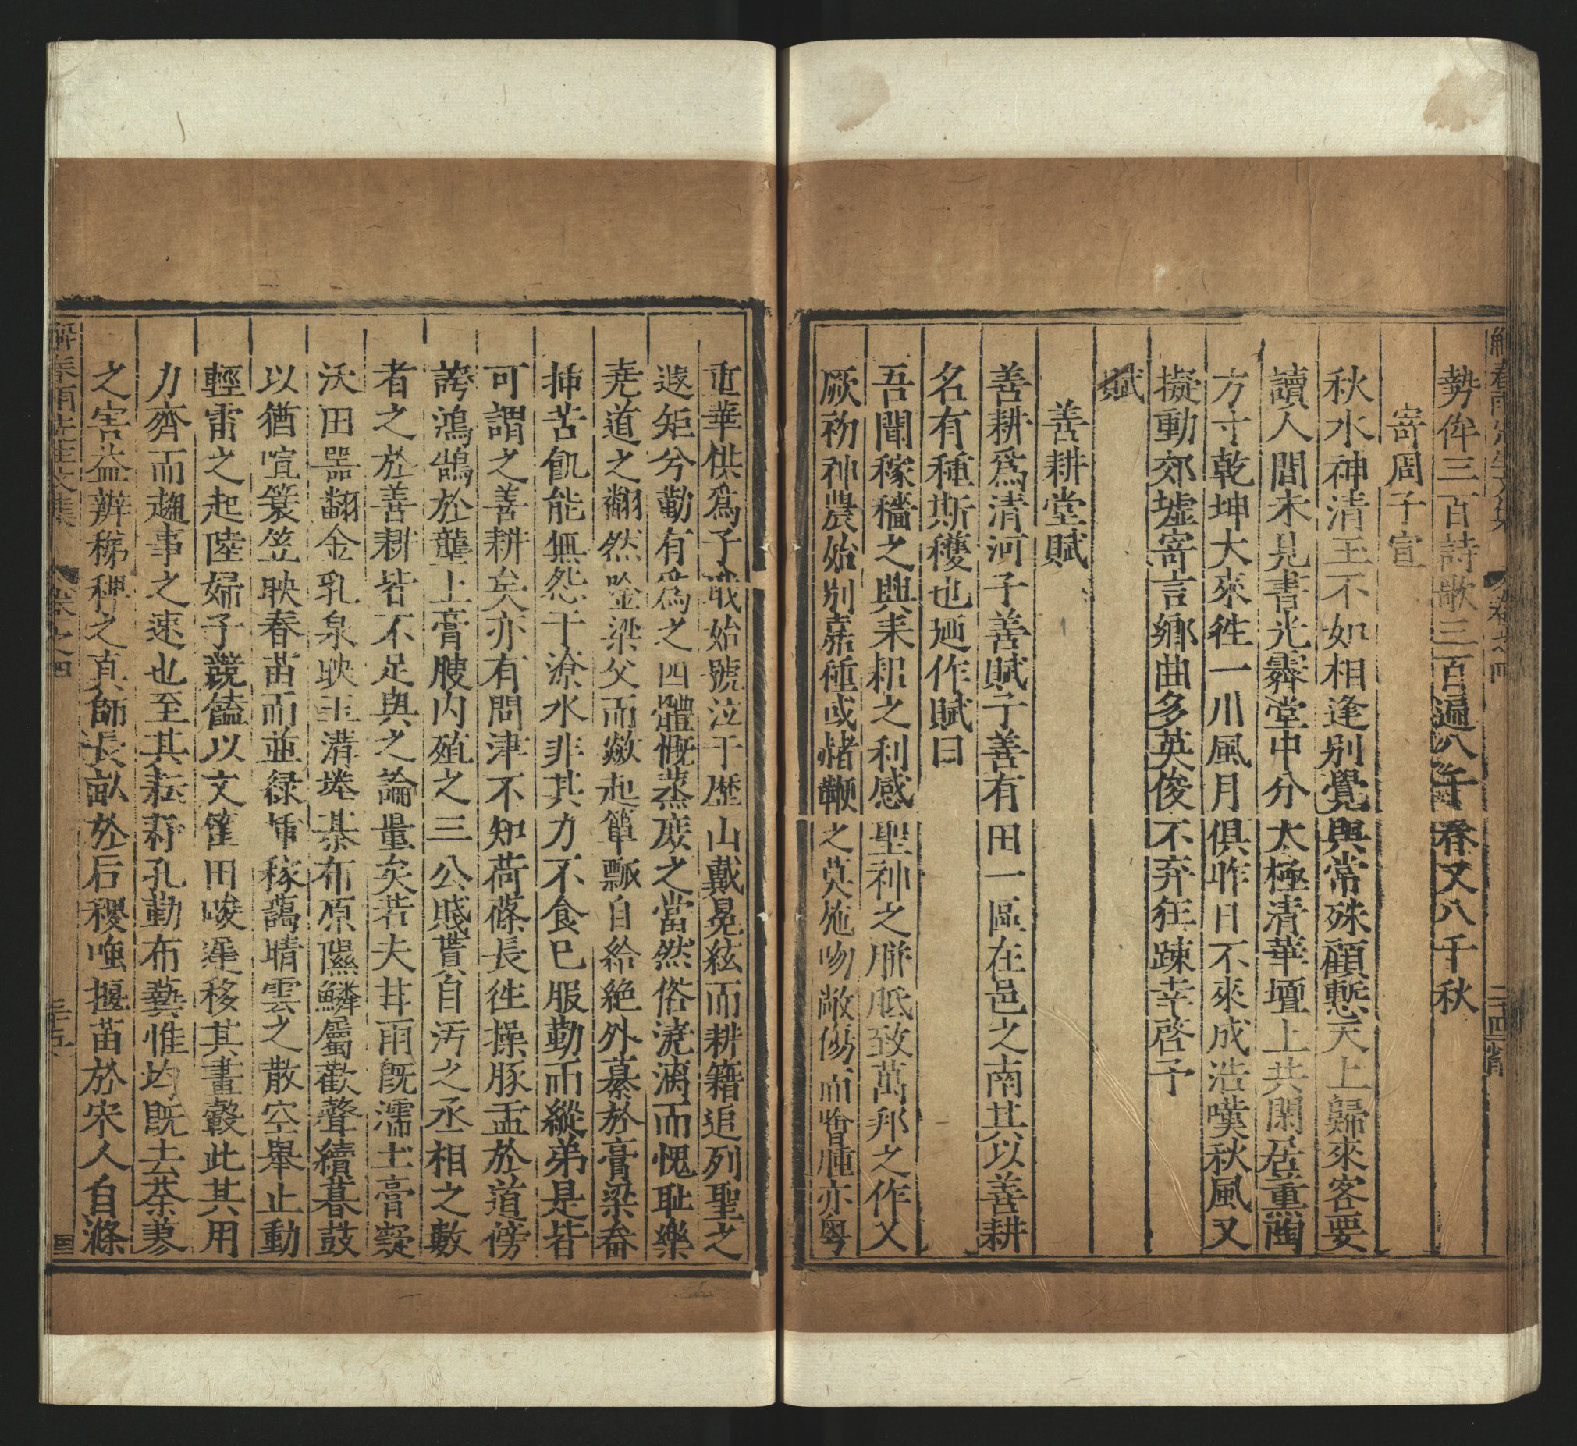 勢侔三百詩歌三百遍八千春又八千秋
寄周子宣
秋水神清玉不如相逢別覺與常殊顧慙天上歸來客要
讀人間未見書光霽堂中分太極清華壇上共閑居重陶
方寸乾坤大來徃一川風月俱昨日不來成浩嘆秋風又
擬動郊墟寄言鄉曲多英俊不弃狂踈幸啓予
賦
善耕堂賦
善耕爲清河子善賦子善有田一區在邑之南其以善耕
名有種斯穫也廼作賦曰
吾聞稼穡之興耒耜之利感聖神之胼胝致萬邦之作乂
厥初神農始別嘉種或赭鞭之莫施吻敝傷而嘗腫亦粤
重華供爲子職始號泣于歷山戴晃絃而耕籍追列聖之
遠矩兮勤有爲之四體慨蒸庶之當然俗澆漓而愧耻樂
堯道之翻然唫梁父而歘起簞瓢自給絶外慕於膏梁畚
挿苦飢能無怨于潦水非其力不食巳服勤而縱弟是皆
可謂之善耕矣亦有問津不知荷蓧長徃操豚盂於道傍
誇鴻鵠於壟上膏腴内殖之三公賤貰自汚之丞相之數
者之於善耕皆不足與之論量矣若夫甘雨旣濡土膏寖
沃田器翻金乳泉映玉溝塍棊布原隰鱗屬歡聲續暮鼓
以猶喧簑笠映春苗而並緑揷稼藹晴雲之散空舉止動
輕雷之起陸婦子競饁以文筐田畯遲移其畫轂此其用
力齊而趨事之速也至其耘耔孔勤布藝惟均旣去荼蓼
之害益辨稊稗之真師長畝於后稷嗤揠苗於宋人自滌